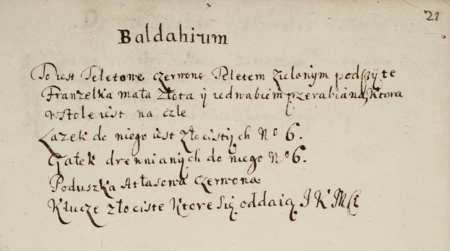 21
Baldahirum
To iest Teletowe czerwone Teletem zielonym podszyte
Franzelka mała złota ij iedwabiem przerabiana, ktora
wstole iest na czele
Lazek do niego iest złocistych No 6.
Gałek drewnianych do niego No 6.
Poduszka Atłasowa czerwona
Klucze złociste ktore się oddaią J K M